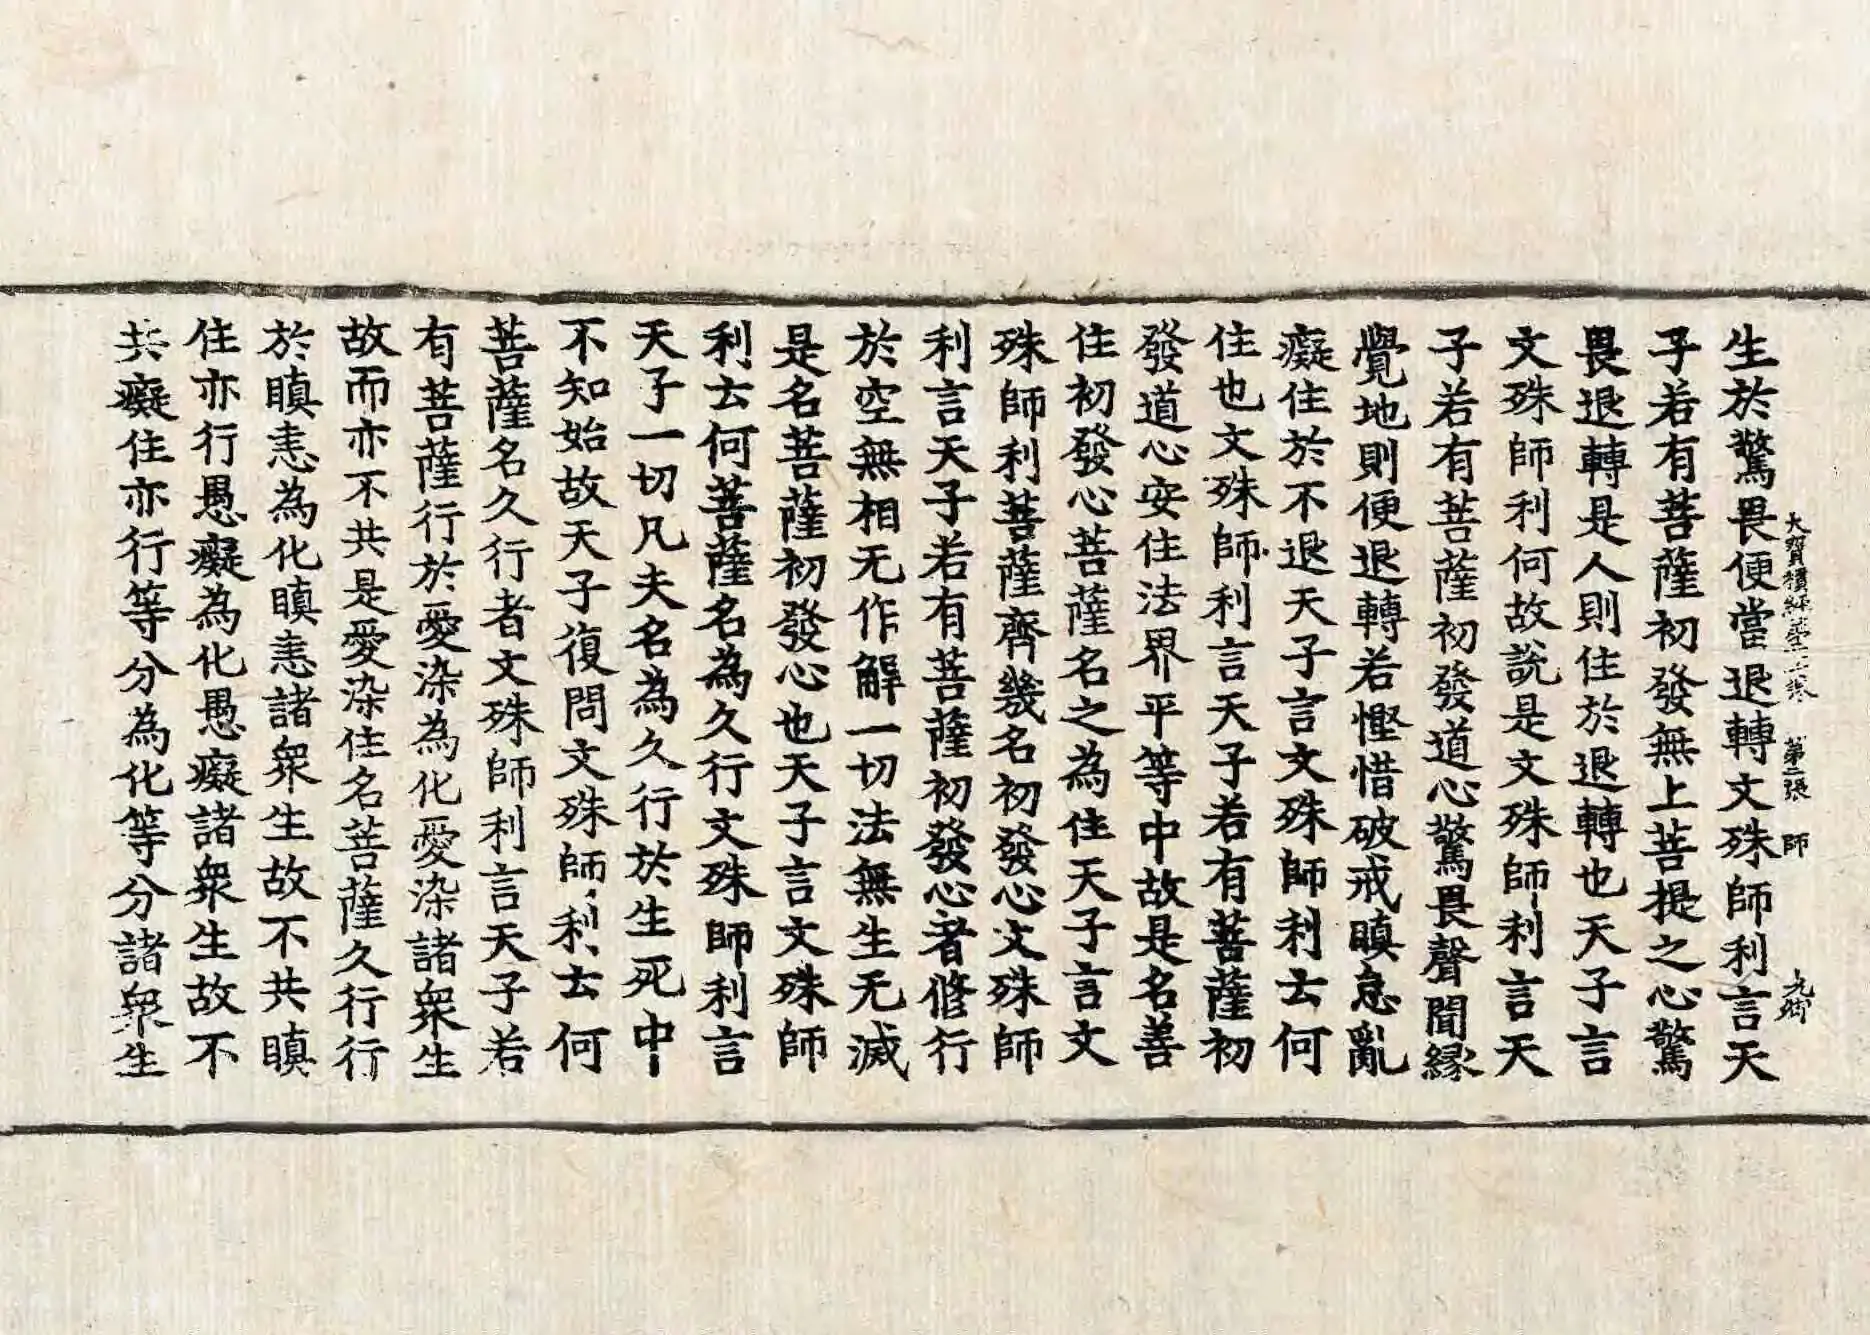 大寶積經 第二張 師
生於驚畏便當退轉文殊師利言天
子若有菩薩初發無上菩提之心驚
畏退轉是人則住於退轉也天子言
文殊師利何故說是文殊師利言天
子若有菩薩初發道心驚畏聲聞緣
覺地則便退轉若慳惜破戒瞋怠亂
癡住於不退天子言文殊師利云何
住也文殊師利言天子若有菩薩初
發道心安住法界平等中故是名善
住初發心菩薩名之為住天子言文
殊師利菩薩齊幾名初發心文殊師
利言天子若有菩薩初發心者修行
於空無相无作解一切法無生无滅
是名菩薩初發心也天子言文殊師
利云何菩薩名為久行文殊師利言
天子一切凡夫名為久行於生死中
不知始故天子復問文殊師利云何
菩薩名久行者文殊師利言天子若
有菩薩行於愛染為化愛染諸衆生
故而亦不共是愛染住名菩薩久行行
於瞋恚為化瞋恚諸衆生故不共瞋
住亦行愚癡為化愚癡諸衆生故不
共癡住亦行等分為化等分諸衆生